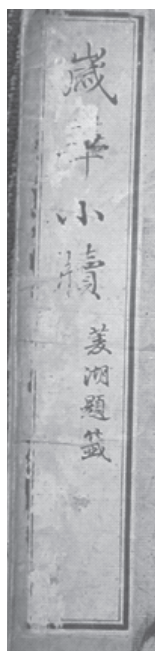 歲華小牘
菱湖題籤